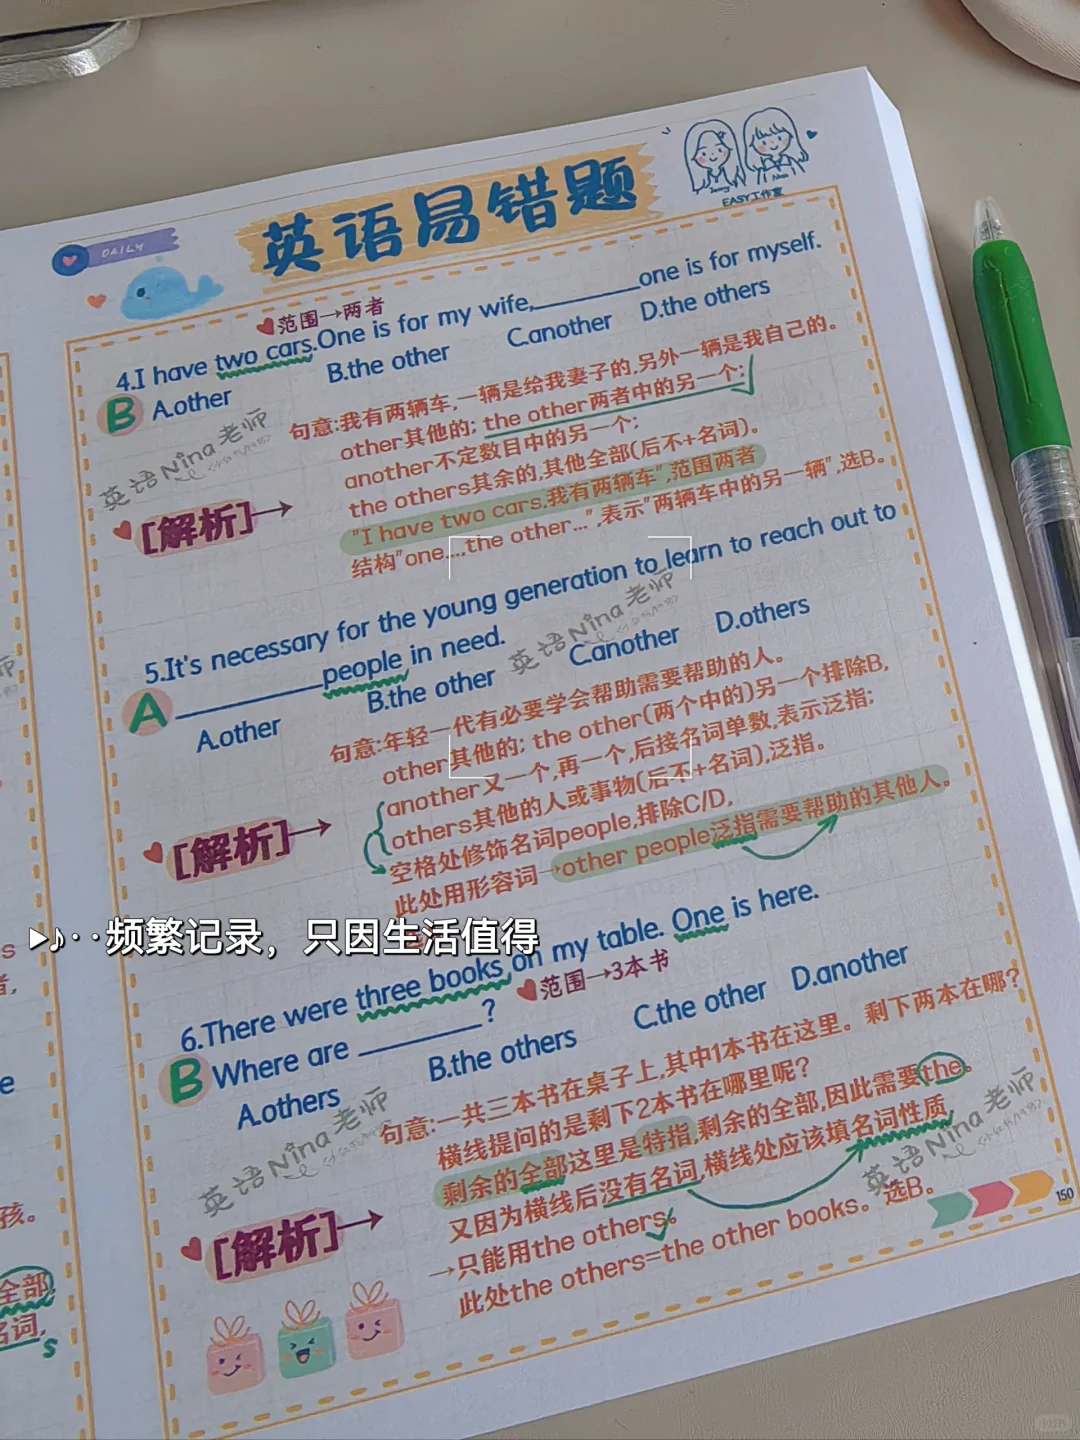 DAILY
英语易错题
EASY工作室
范围→两者
4.I have two cars.One is for my wife,________one is for myself.
B A.other B.the other C.another D.the others
句意:我有两辆车,一辆是给我妻子的,另外一辆是我自己的。
other其他的; the other两者中的另一个;
another不定数目中的另一个;
the others其余的,其他全部(后不+名词)。
[解析]→ "I have two cars.我有两辆车",范围两者
结构"one...,the other...",表示"两辆车中的另一辆",选B。
英语Nina老师
5.It's necessary for the young generation to learn to reach out to
A ________people in need.
英语Nina老师
A.other B.the other C.another D.others
句意:年轻一代有必要学会帮助需要帮助的人。
other其他的; the other(两个中的)另一个排除B,
another又一个,再一个,后接名词单数,表示泛指;
[解析]→ others其他的人或事物(后不+名词),泛指。
空格处修饰名词people,排除C/D,
此处用形容词→other people泛指需要帮助的其他人。
▶♪··频繁记录，只因生活值得
6.There were three books on my table. One is here.
范围→3本书
B Where are ________?
A.others B.the others C.the other D.another
句意:一共三本书在桌子上,其中1本书在这里。剩下两本在哪?
横线提问的是剩下2本书在哪里呢?
剩余的全部这里是特指,剩余的全部,因此需要the。
[解析]→ 又因为横线后没有名词,横线处应该填名词性质
→只能用the others。
此处the others=the other books。选B。
英语Nina老师
英语Nina老师
150
孩。
全部
名词,
s